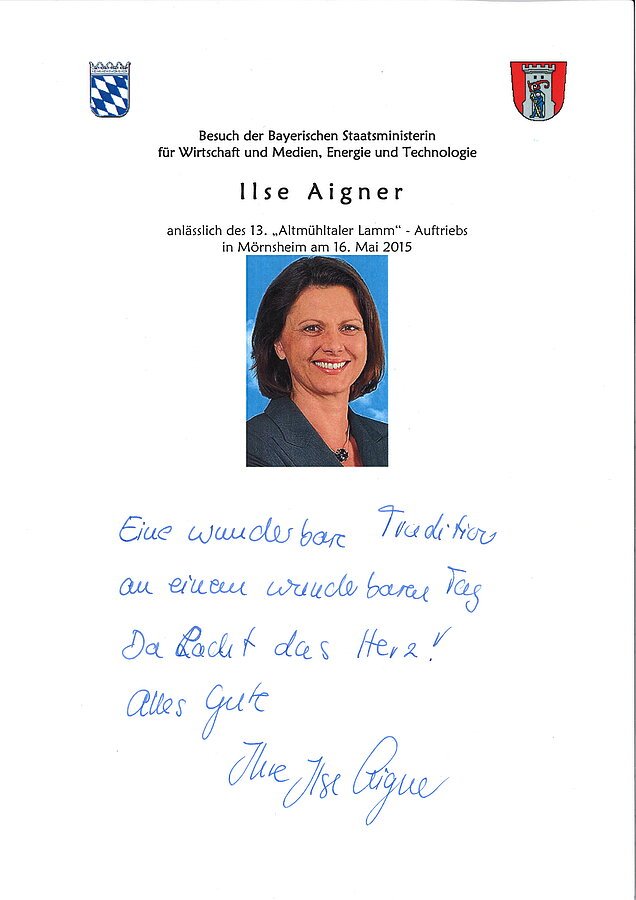 Besuch der Bayerischen Staatsministerin
für Wirtschaft und Medien, Energie und Technologie
Ilse Aigner
anlässlich des 13. „Altmühltaler Lamm“ - Auftriebs
in Mörnsheim am 16. Mai 2015
Eine wunderbare Tradition
an einem wunderbaren Tag
Da Lacht das Herz!
Alles Gute
Ihre Ilse Aigner